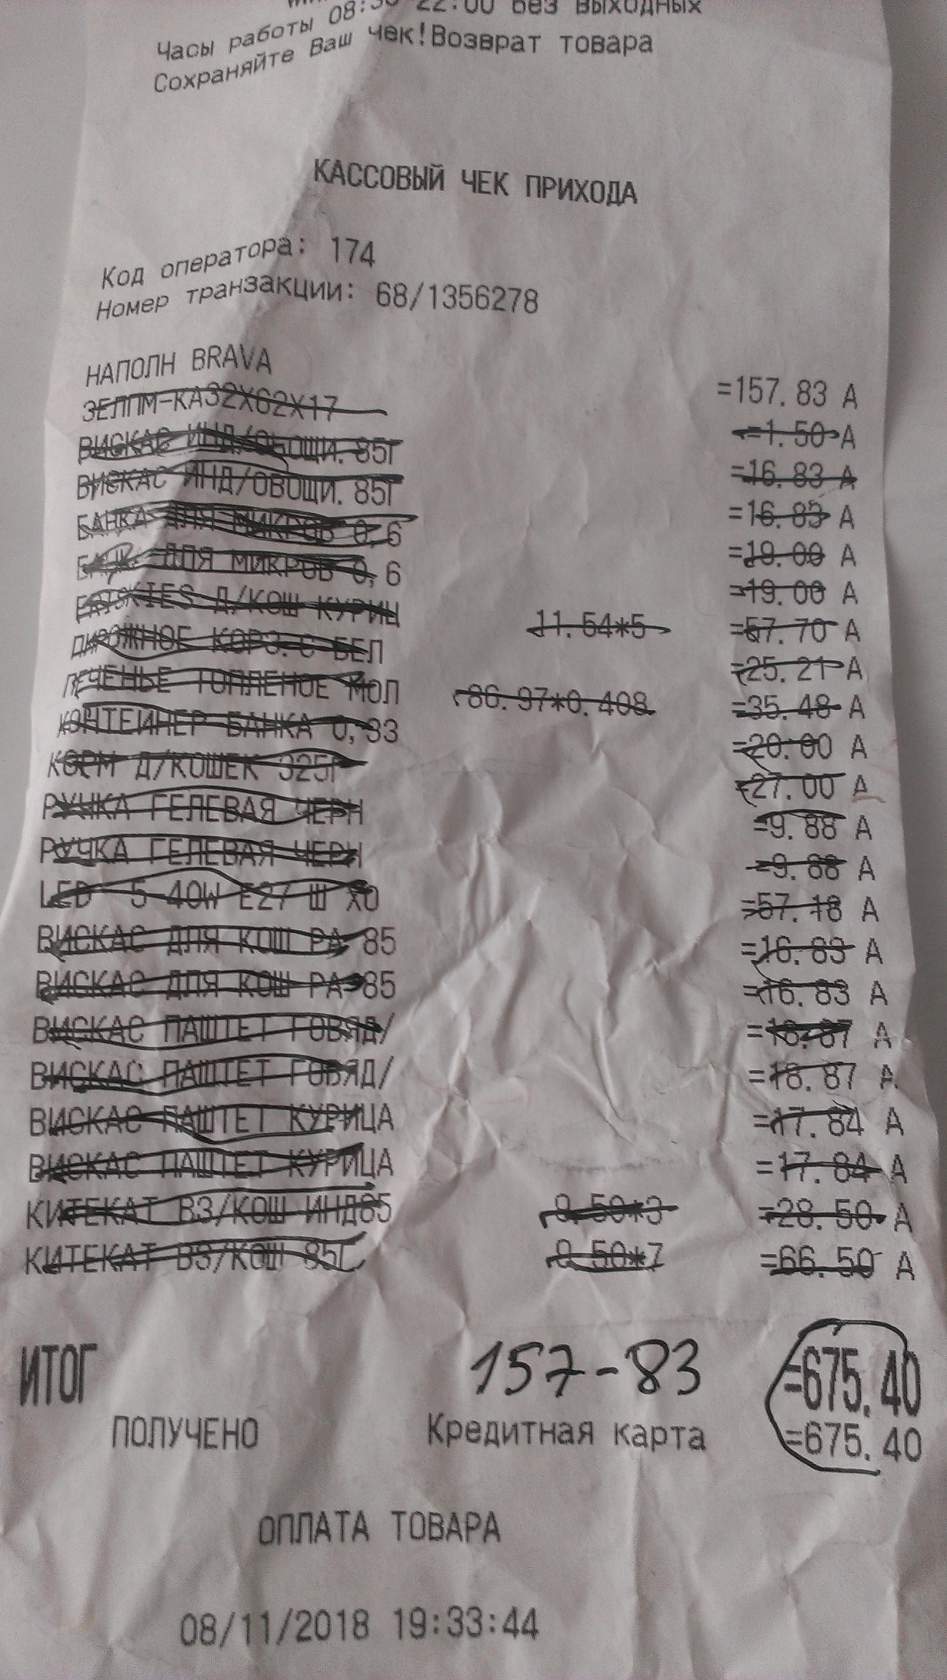 Часы работы 08:30-22:00 без выходных
Сохраняйте Ваш чек!Возврат товара
КАССОВЫЙ ЧЕК ПРИХОДА
Код оператора: 174
Номер транзакции: 68/1356278
НАПОЛН BRAVA =157.83 А
ЗЕЛПМ-КА32Х62Х17 =1.50 А
ВИСКАС ИНД/ОВОЩИ. 85Г =16.83 А
ВИСКАС ИНД/ОВОЩИ. 85Г =16.83 А
БАНКА ДЛЯ МИКРОВ 0,6 =19.00 А
БАНК. ДЛЯ МИКРОВ 0,6 =19.00 А
Д/КОШ КУРИЦ 11.54*5 =57.70 А
ПИРОЖНОЕ КОРЗ. С БЕЛ =25.21 А
ПЕЧЕНЬЕ ТОПЛЕНОЕ МОЛ 86.97*0.408 =35.48 А
КОНТЕЙНЕР БАНКА 0,33 =20.00 А
КОРМ Д/КОШЕК 325Г =27.00 А
РУЧКА ГЕЛЕВАЯ ЧЕРН =9.88 А
РУЧКА ГЕЛЕВАЯ ЧЕРН =9.88 А
LED 5-40W E27 Ш ХО =57.18 А
ВИСКАС ДЛЯ КОШ РА 85 =16.83 А
ВИСКАС ДЛЯ КОШ РА 85 =16.83 А
ВИСКАС ПАШТЕТ ГОВЯД/ =18.87 А
ВИСКАС ПАШТЕТ ГОВЯД/ =18.87 А
ВИСКАС ПАШТЕТ КУРИЦА =17.84 А
ВИСКАС ПАШТЕТ КУРИЦА =17.84 А
КИТЕКАТ ВЗ/КОШ ИНД85 9.50*3 =28.50 А
КИТЕКАТ ВЗ/КОШ 85Г 9.50*7 =66.50 А
ИТОГ 157-83 =675.40
ПОЛУЧЕНО Кредитная карта =675.40
ОПЛАТА ТОВАРА
08/11/2018 19:33:44